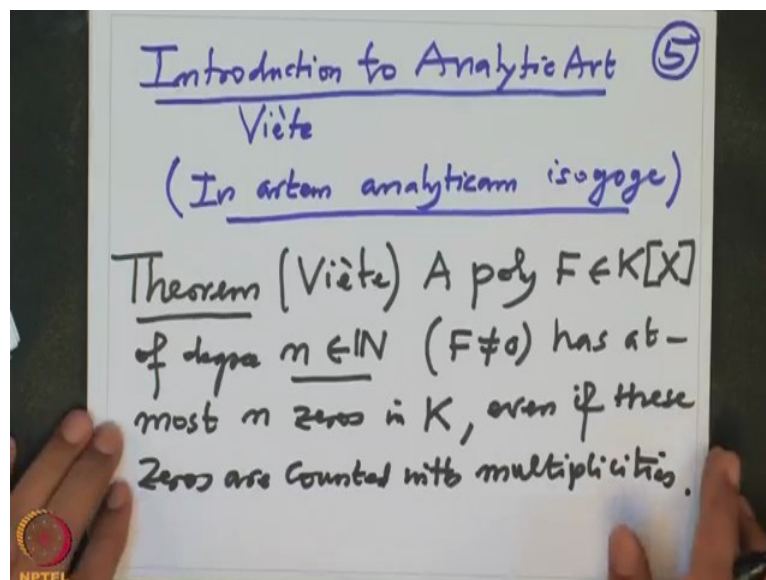 Introduction to Analytic Art ⑤
Viète
(In artem analyticam isogoge)
Theorem (Viète) A poly F ∈ K[X]
of degree n ∈ ℕ (F ≠ 0) has at-
most n zeros in K, even if these
Zeros are counted with multiplicities.
NPTEL